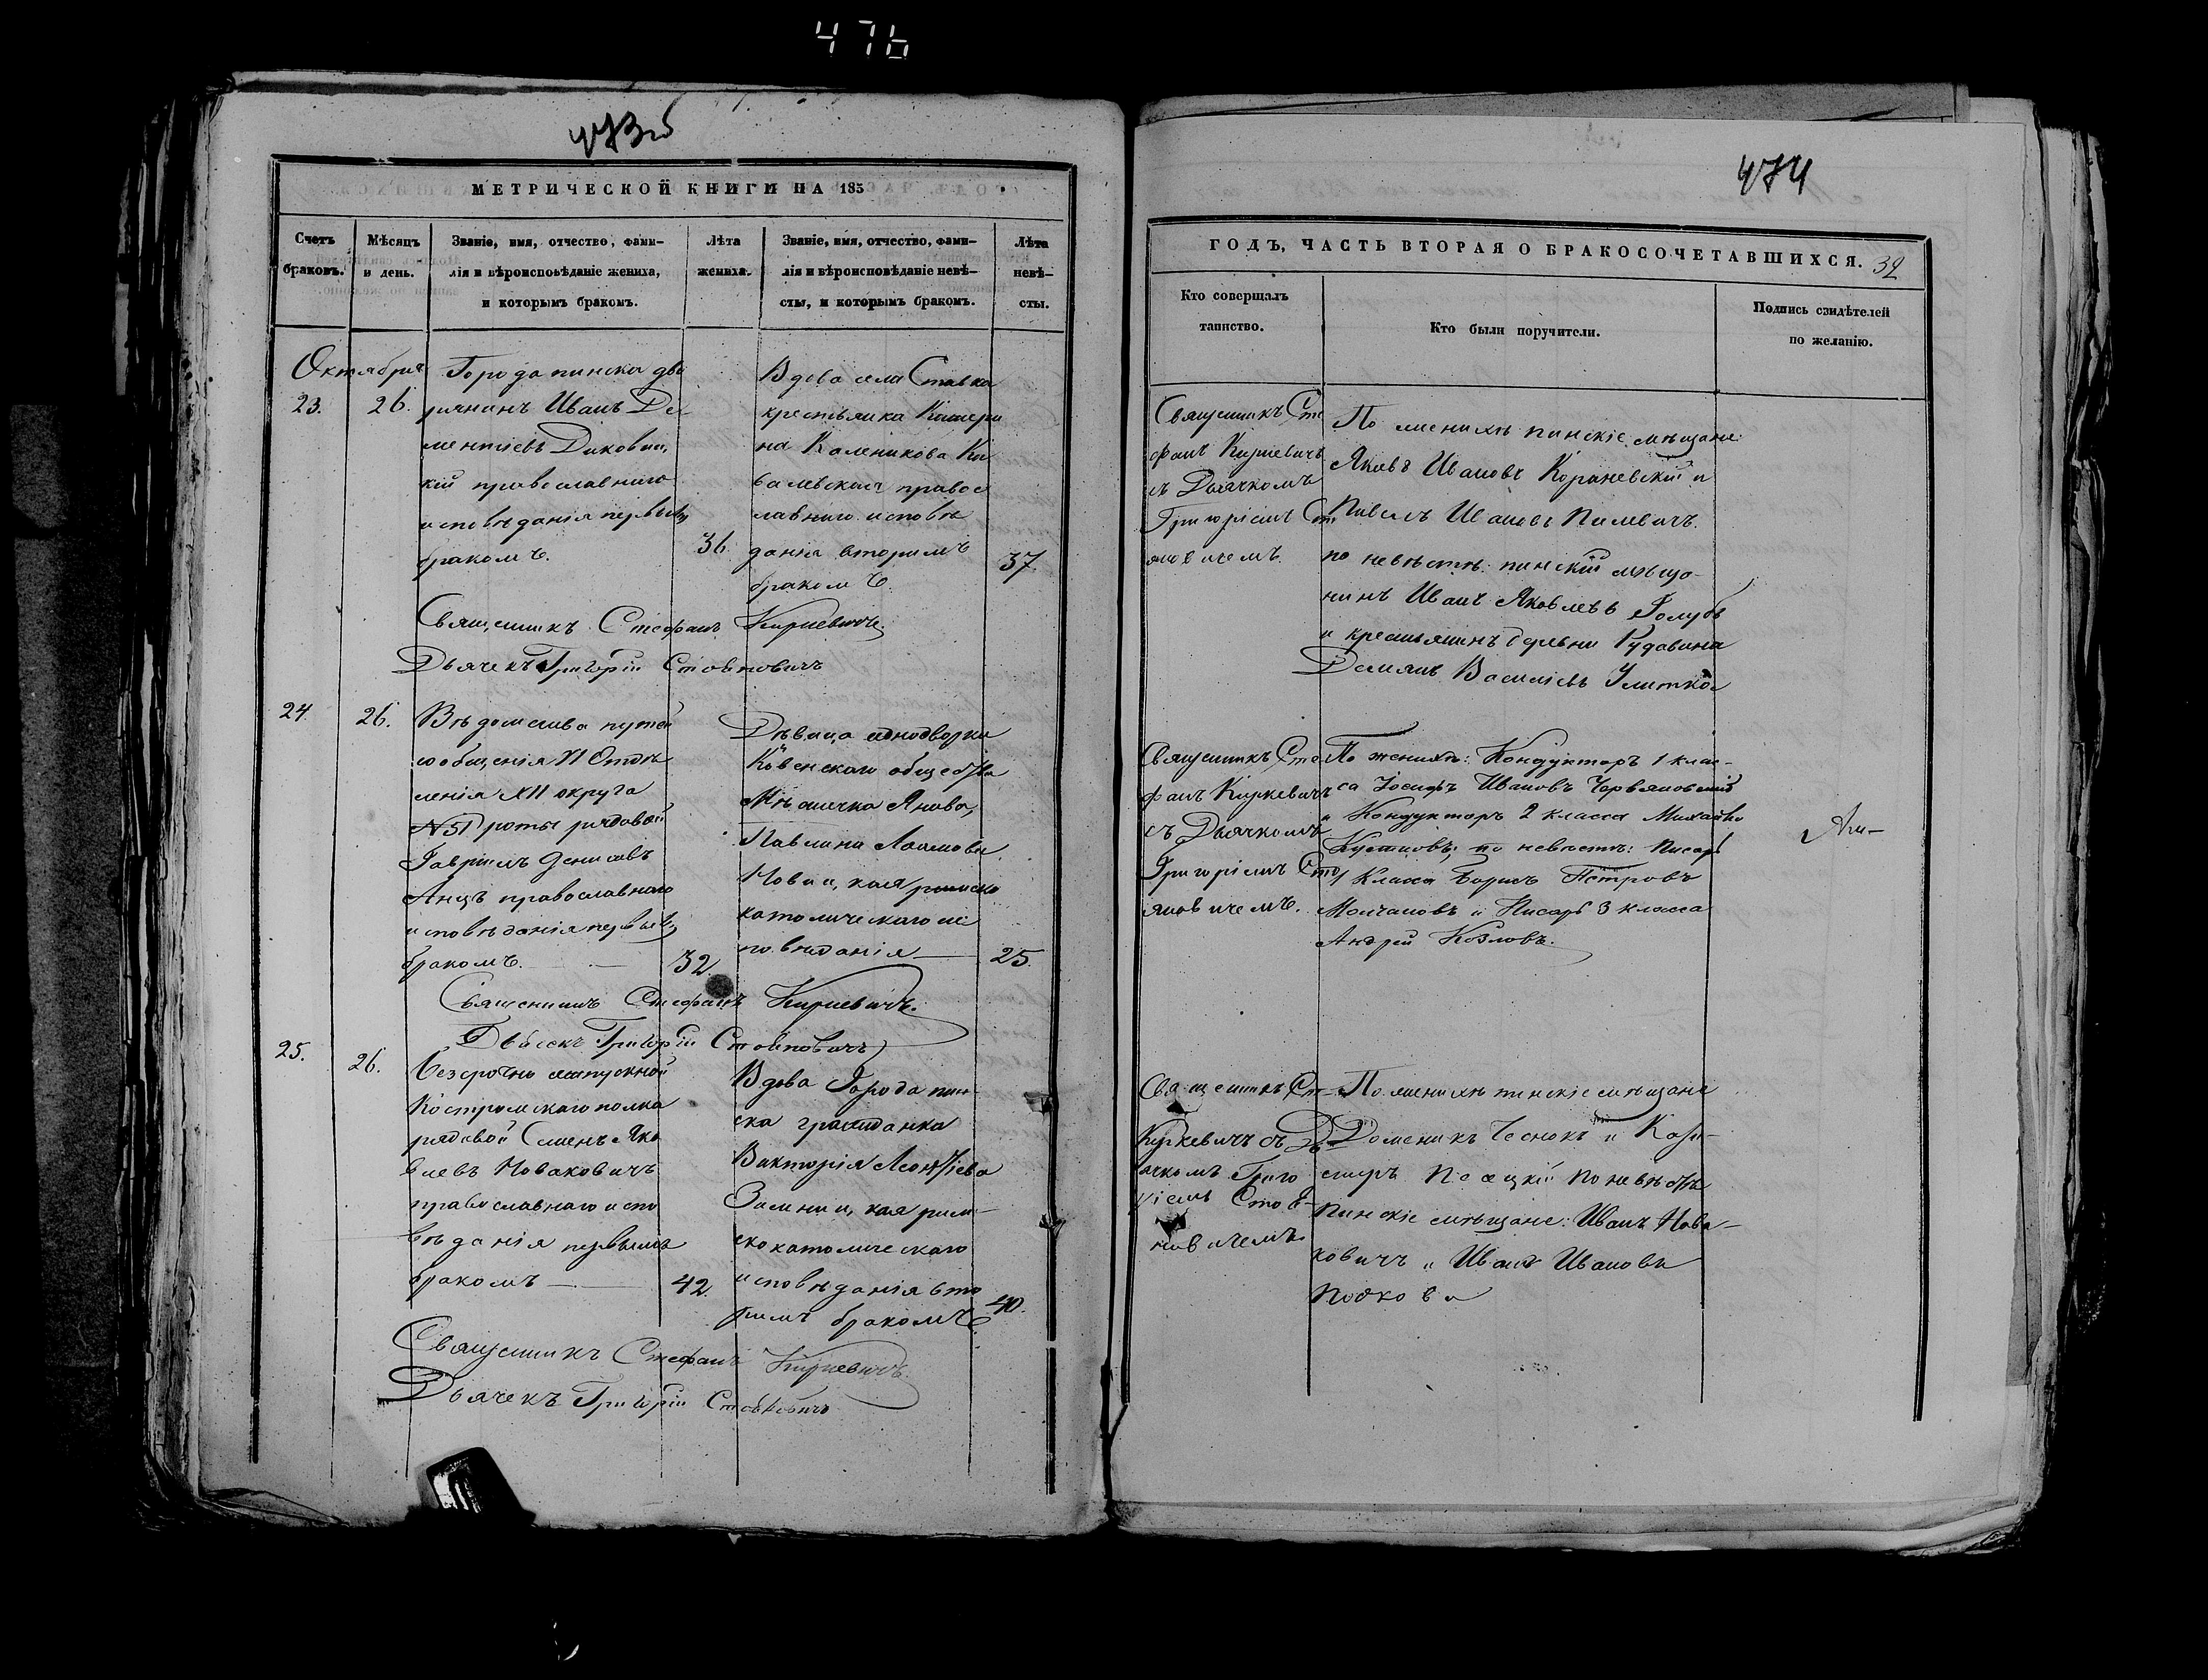 476
473б
МЕТРИЧЕСКОЙ КНИГИ НА 185
Счетъ браковъ.
Мѣсяцъ и день.
Званіе, имя, отчество, фами-
лія и вѣроисповѣданіе жениха,
и которымъ бракомъ.
Лѣта
жениха.
Званіе, имя, отчество, фами-
лія и вѣроисповѣданіе невѣ-
сты, и которымъ бракомъ.
Лѣта
невѣ-
сты.
Октября
23.
26.
Города пинска дво
рянинъ Иванъ Де-
ментіевъ
кій православнаго
исповѣданія первымъ
бракомъ.
36.
Вдова села Ставка
крестьянка Катери
на Каленикова Ко
валевская правос
лавнаго исповѣ
данія вторымъ
бракомъ.
37.
Священникъ Стефанъ Киркевичъ.
Дьячекъ Григорій Стояновичъ
24.
26.
Вѣдомства путей
сообщенія II Отдѣ
ленія XII округа
№51 роты рядовой
Гавріилъ Денисовъ
Анцъ православнаго
исповѣданія первымъ
бракомъ.
32.
Дѣвица однодворка
Ковенскаго общества
Мѣстечка Янова,
Павлина Адамова
Новицкая римско
католическаго ис
повѣданія
25.
Священникъ Стефанъ Киркевичъ.
Дьячекъ Григорій Стояновичъ
25.
26.
Безсрочно отпускной
Костромскаго полка
рядовой Семенъ Яко
влевъ Новаковичъ
православнаго испо
вѣданія первымъ
бракомъ
42.
Вдова Города пин-
ска гражданка
Викторія Леонтіева
римско-
католическаго
исповѣданія вто
рымъ бракомъ
40.
Священникъ Стефанъ Киркевичъ.
Дьячекъ Григорій Стояновичъ
474
ГОДЪ, ЧАСТЬ ВТОРАЯ О БРАКОСОЧЕТАВШИХСЯ.
32
Кто совершалъ
таинство.
Кто были поручители.
Подпись свидѣтелей
по желанію.
Священникъ Сте
фанъ Киркевичъ
съ Дьячкомъ
Григоріемъ Сто
яновичемъ.
По женихѣ пинскіе мѣщане:
Яковъ Ивановъ Кораневскій и
Павелъ Ивановъ Пилевичъ.
по невѣстѣ: пинскій мѣща-
нинъ Иванъ Яковлевъ Голубъ
и крестьянинъ деревни Рудавина
Демянъ Василіевъ Улитко
Священникъ Сте
фанъ Киркевичъ
съ Дьячкомъ
Григоріемъ Сто
яновичемъ.
По женихѣ: Кондукторъ 1 клас-
са Іосифъ Ивановъ Червяковскій
и Кондукторъ 2 класса Михайло
Кустовъ; по невѣстѣ: Писарь
1 Класса Борисъ Петровъ
Молчановъ и Писарь 3 класса
Андрей Козловъ.
Священникъ Ст-
Киркевичъ съ Дь
ячкомъ Григо
ріемъ Стоя-
новичемъ
По женихѣ пинскіе мѣщане
Доменикъ Чеснокъ и Кази-
миръ по невѣстѣ
пинскіе мѣщане: Иванъ Нова-
ковичъ и Иванъ Ивановъ
Подкова